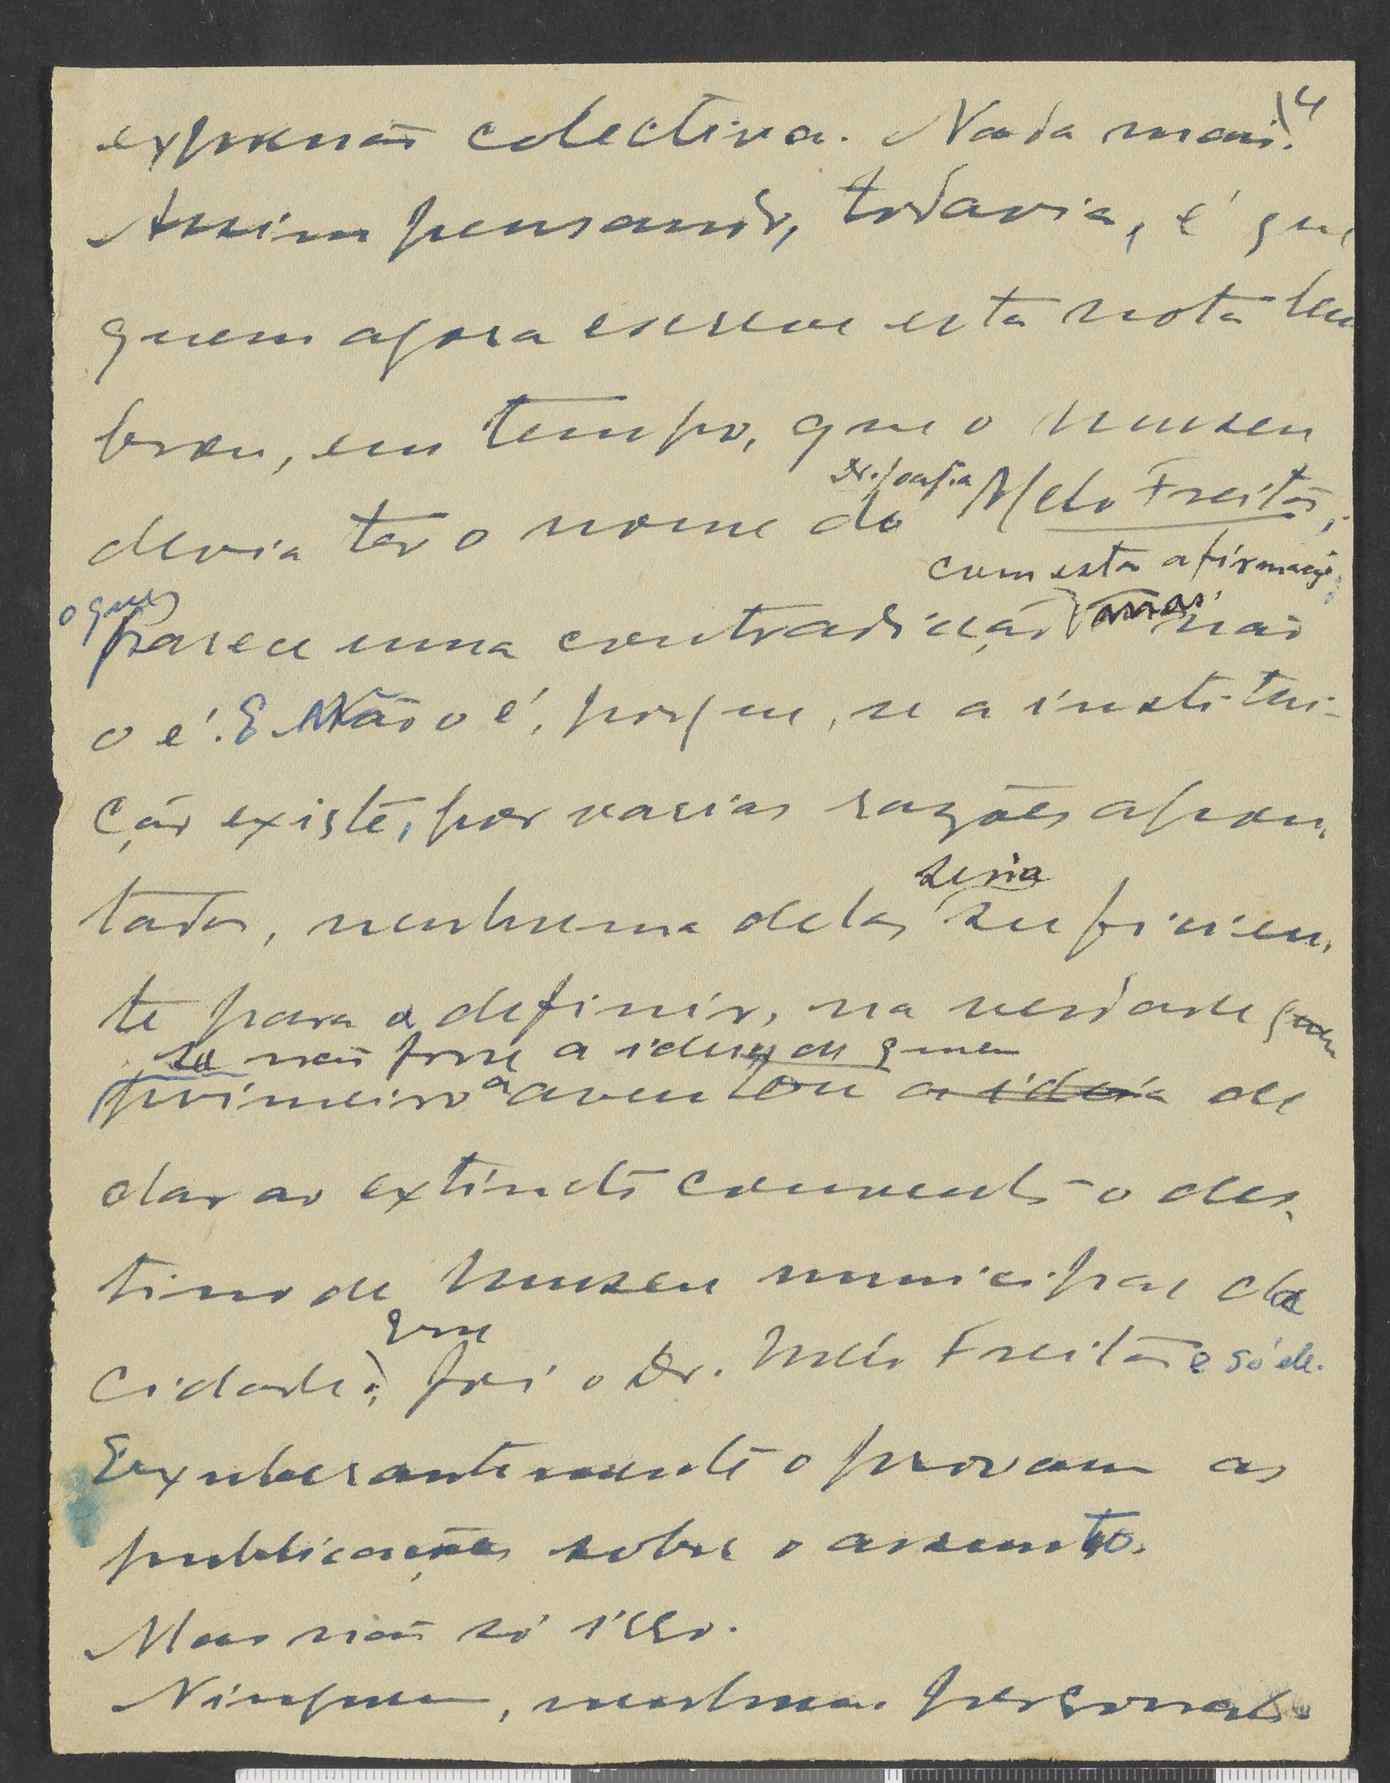 4
expressão colectiva. Nada mais.
Assim pensando, todavia, é que
quem agora escreve esta nota lem
brou, em tempo, que o museu
Dr.
devia ter o nome do Melo Freitas,
com esta afirmação
o que
parece uma contradicção mas não
o é. E Não o é, porque, se a institui-
ção existe, por varias razões apon-
seria
tadas, nenhuma delas suficien-
te para a definir, na verdade quem
se não fosse a ideia de quem
primeiro a aventou a ideia de
dar ao extincto convento o des-
tino de Museu municipal da
que
cidade; foi o Dr. Melo Freitas e só ele.
Exuberantemente o provam as
publicações sobre o assunto.
Mas não só isso.
Ninguem, nenhuma personali-